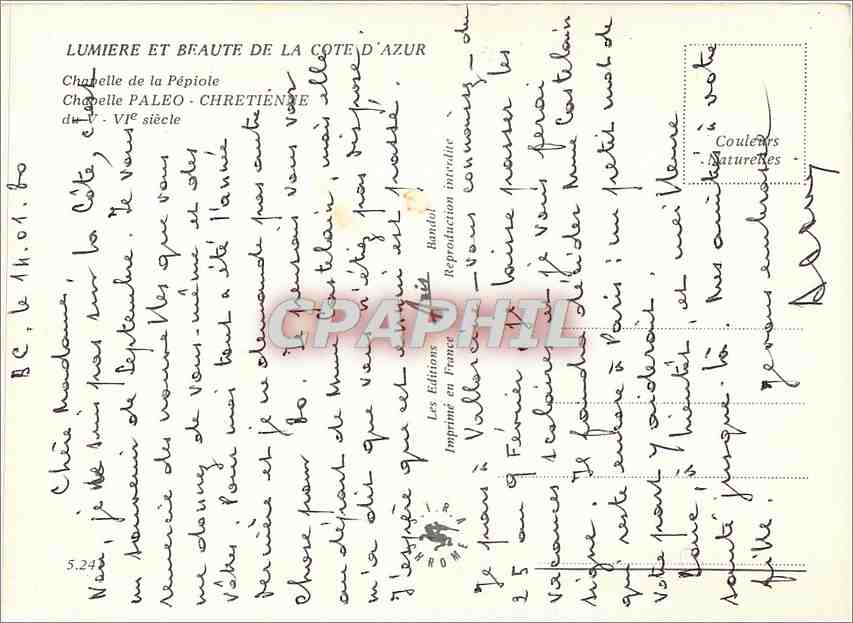 LUMIERE ET BEAUTE DE LA COTE D'AZUR
Chapelle de la Pépiole
Chapelle PALEO - CHRETIENNE
du V - VIe siècle
Couleurs
Naturelles
Les Editions Aris Bandol
Imprimé en France Reproduction interdite
S.I.R.A
CHROME
5.24
CPAPHIL
BC. le 14.01.80
Chère Madame,
Non, je ne suis pas sur la Côte, c'est
un souvenir de Septembre. Je vous
remercie des nouvelles que vous
me donnez de vous-même et des
vôtres. Pour moi tout a été l'année
dernière et je ne demande pas autre
chose pour 80. Je pensais vous voir
au départ de Mme Castelain, mais elle
m'a dit que vous n'étiez pas dispose.
J'espère que cet ennui est passé.
Je pars à Vallorcine - vous connaissez - du
25 au 9 Février. Je laisse passer les
vacances scolaires et je vous ferai
signe. Il faudra décider Mme Castelain
qui reste encore à Paris : un petit mot de
votre part y aiderait.
Donc, à bientôt, et meilleure
santé jusque-là. Mes amitiés à votre
fille.
Je vous embrasse